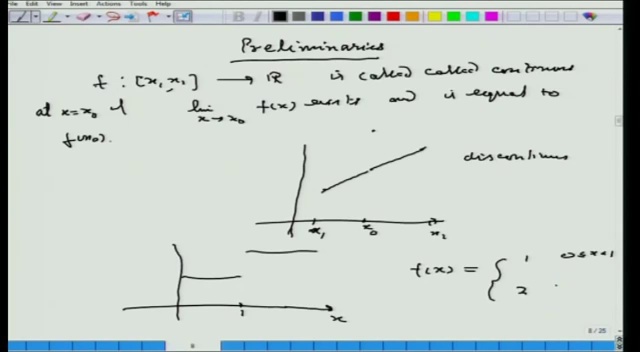 File Edit View Insert Actions Tools Help
Preliminaries
f : [x₁, x₁] → ℝ is called called continuous
at x=x₀ if lim x→x₀ f(x) exists and is equal to
f(x₀).
discontinuous
x₁ x₀ x₂
f(x) = { 1 0≤x<1
2
1 x
8 / 25